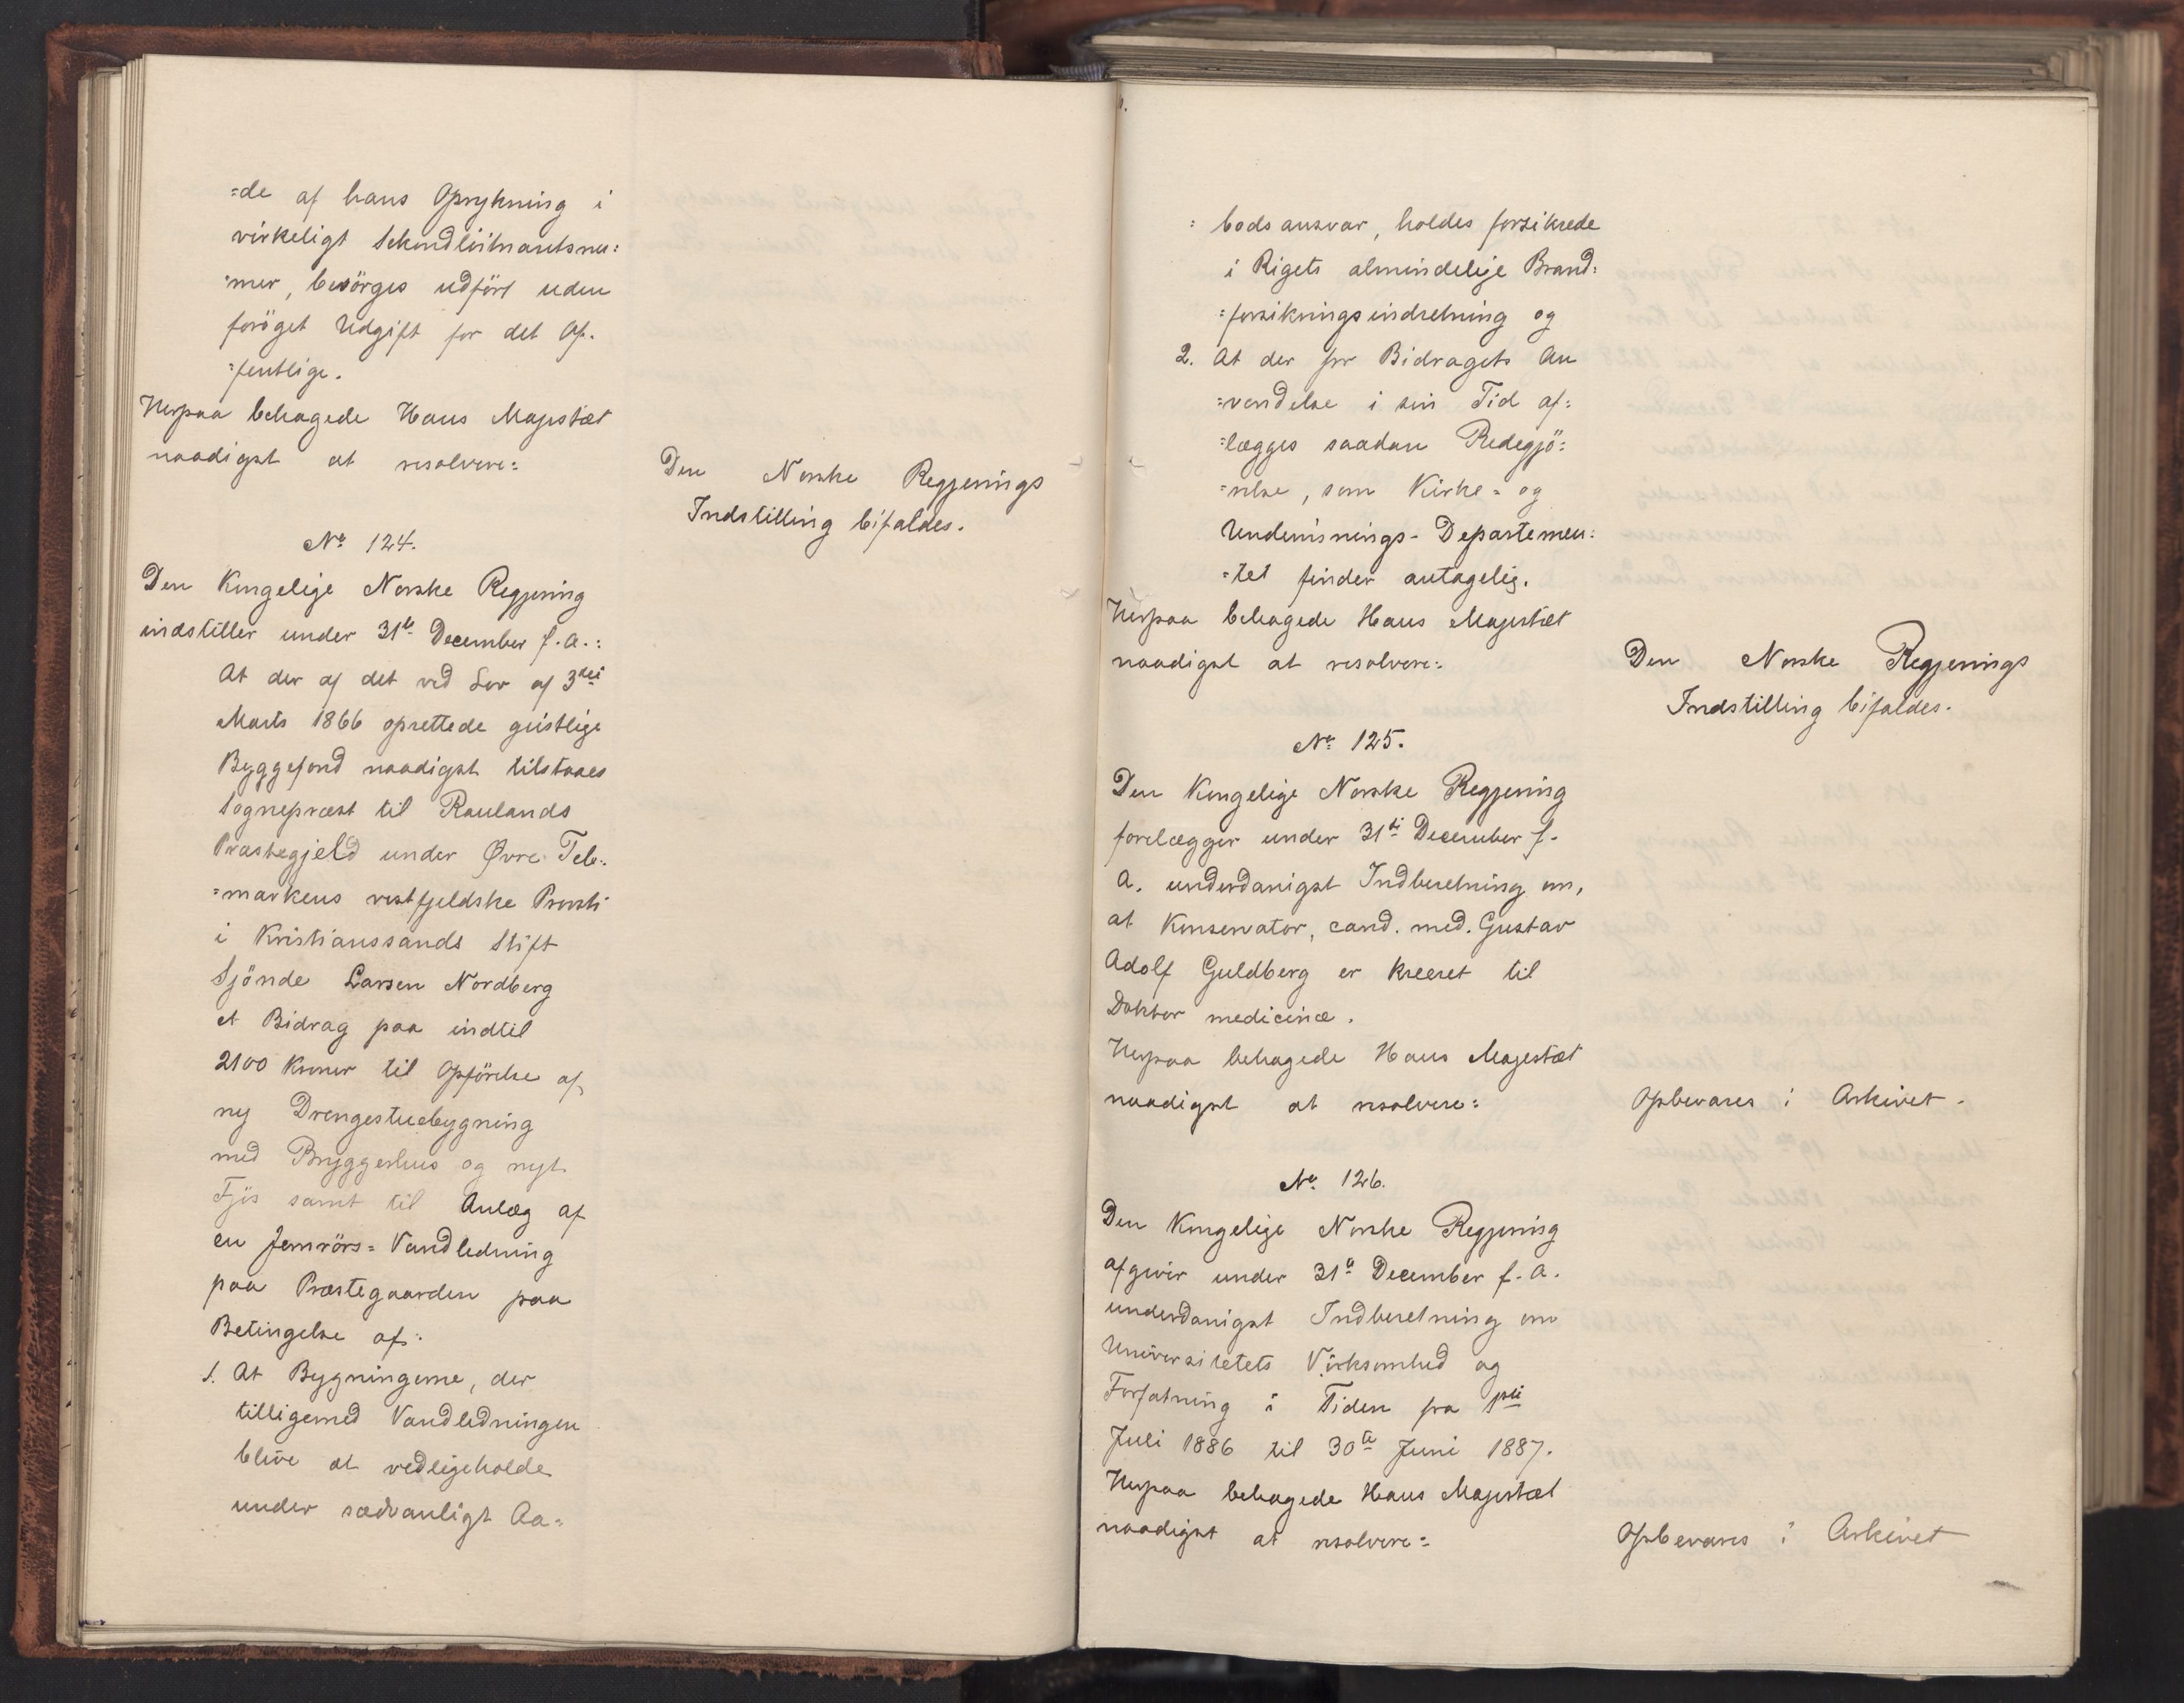 =de af hans Oprykning i
virkeligt Sekondløitnantsnu=
=mer, besörges udfört uden
foröget Udgift for det Of=
=fentlige.
Herpaa behagede Hans Majestæt
naadigst at resolvere:
Den Norske Regjerings
Indstilling bifaldes.
No 124.
Den Kongelige Norske Regjering
indstiller under 31te December f. A.:
At der af det ved Lov af 3die
Marts 1866 oprettede geistlige
Byggefond naadigst tilstaaes
Sognepræst til Raulands
Præstegjeld under Øvre Tele=
=markens vestfjeldske Provsti
i Kristianssands Stift
Sjönde Larsen Nordberg
et Bidrag paa indtil
2100 Kroner til Opförelse af
ny Drengestuebygning
med Bryggerhus og nyt
Fjös samt til Anlæg af
en Jernrörs=Vandledning
paa Præstegaarden paa
Betingelse af:
1. At Bygningerne, der
tilligemed Vandledningen
blive at vedligeholde
under sædvanligt Aa=
=bodsansvar, holdes forsikrede
i Rigets almindelige Brand=
=forsikringsindretning og
2. At der for Bidragets An
=vendelse i sin Tid af=
=lægges saadan Redegjö=
=relse, som Kirke= og
Undervisnings-Departemen=
=tet finder antagelig.
Herpaa behagede Hans Majestæt
naadigst at resolvere:
Den Norske Regjerings
Indstilling bifaldes.
No 125.
Den Kongelige Norske Regjering
forelægger under 31te December f.
A. underdanigst Indberetning om,
at Konservator, cand. med. Gustav
Adolf Guldberg er kreeret til
Doktor medicinæ.
Herpaa behagede Hans Majestæt
naadigst at resolvere:
Opbevares i Arkivet.
No 126.
Den Kongelige Norske Regjering
afgiver under 31te December f. A.
underdanigst Indberetning om
Universitetets Virksomhed og
Forfatning i Tiden fra 1ste
Juli 1886 til 30te Juni 1887.
Herpaa behagede Hans Majestæt
naadigst at resolvere:
Opbevares i Arkivet